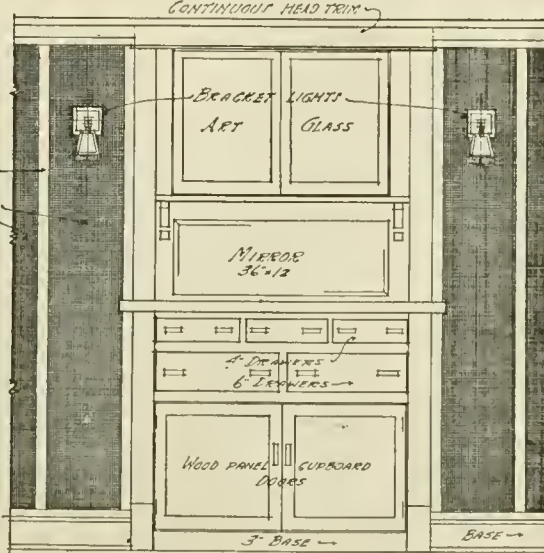 CONTINUOUS HEAD TRIM
BRACKET LIGHTS
ART GLASS
MIRROR
36"x12
4" DRAWERS
6" DRAWERS
WOOD PANEL CUPBOARD
DOORS
3" BASE
BASE